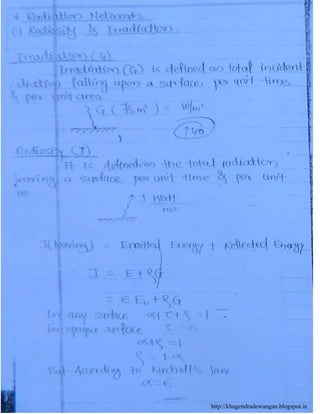 * Radiation Networks
(1) Radiosity & Irradiation
Irradiation (G)
Irradiation (G) is defined as total incident
diation falling upon a surface, per unit time,
& per unit area
G ( J/sm² ) = W/m²
740
Radiosity (J)
It is defined as the total radiation
leaving a surface per unit time & per unit
J Watt/m²
J(leaving) = Emitted Energy + Reflected Energy
J = E + ρG
= ϵ E_b + ρG
for any surface α+τ+ρ = 1
for opaque surface τ = 0
α+ρ = 1
ρ = 1-α
But According to Kirchoff's law
α = ϵ
http://khagendradewangan.blogspot.in